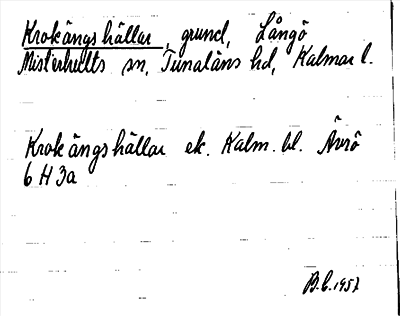 Krokängshällar, grund, Långö
Misterhults sn, Tunaläns hd, Kalmar l.
Krokängshällar ek. Kalm. bl. Ävrö
6 H 3a
B.C. 1957